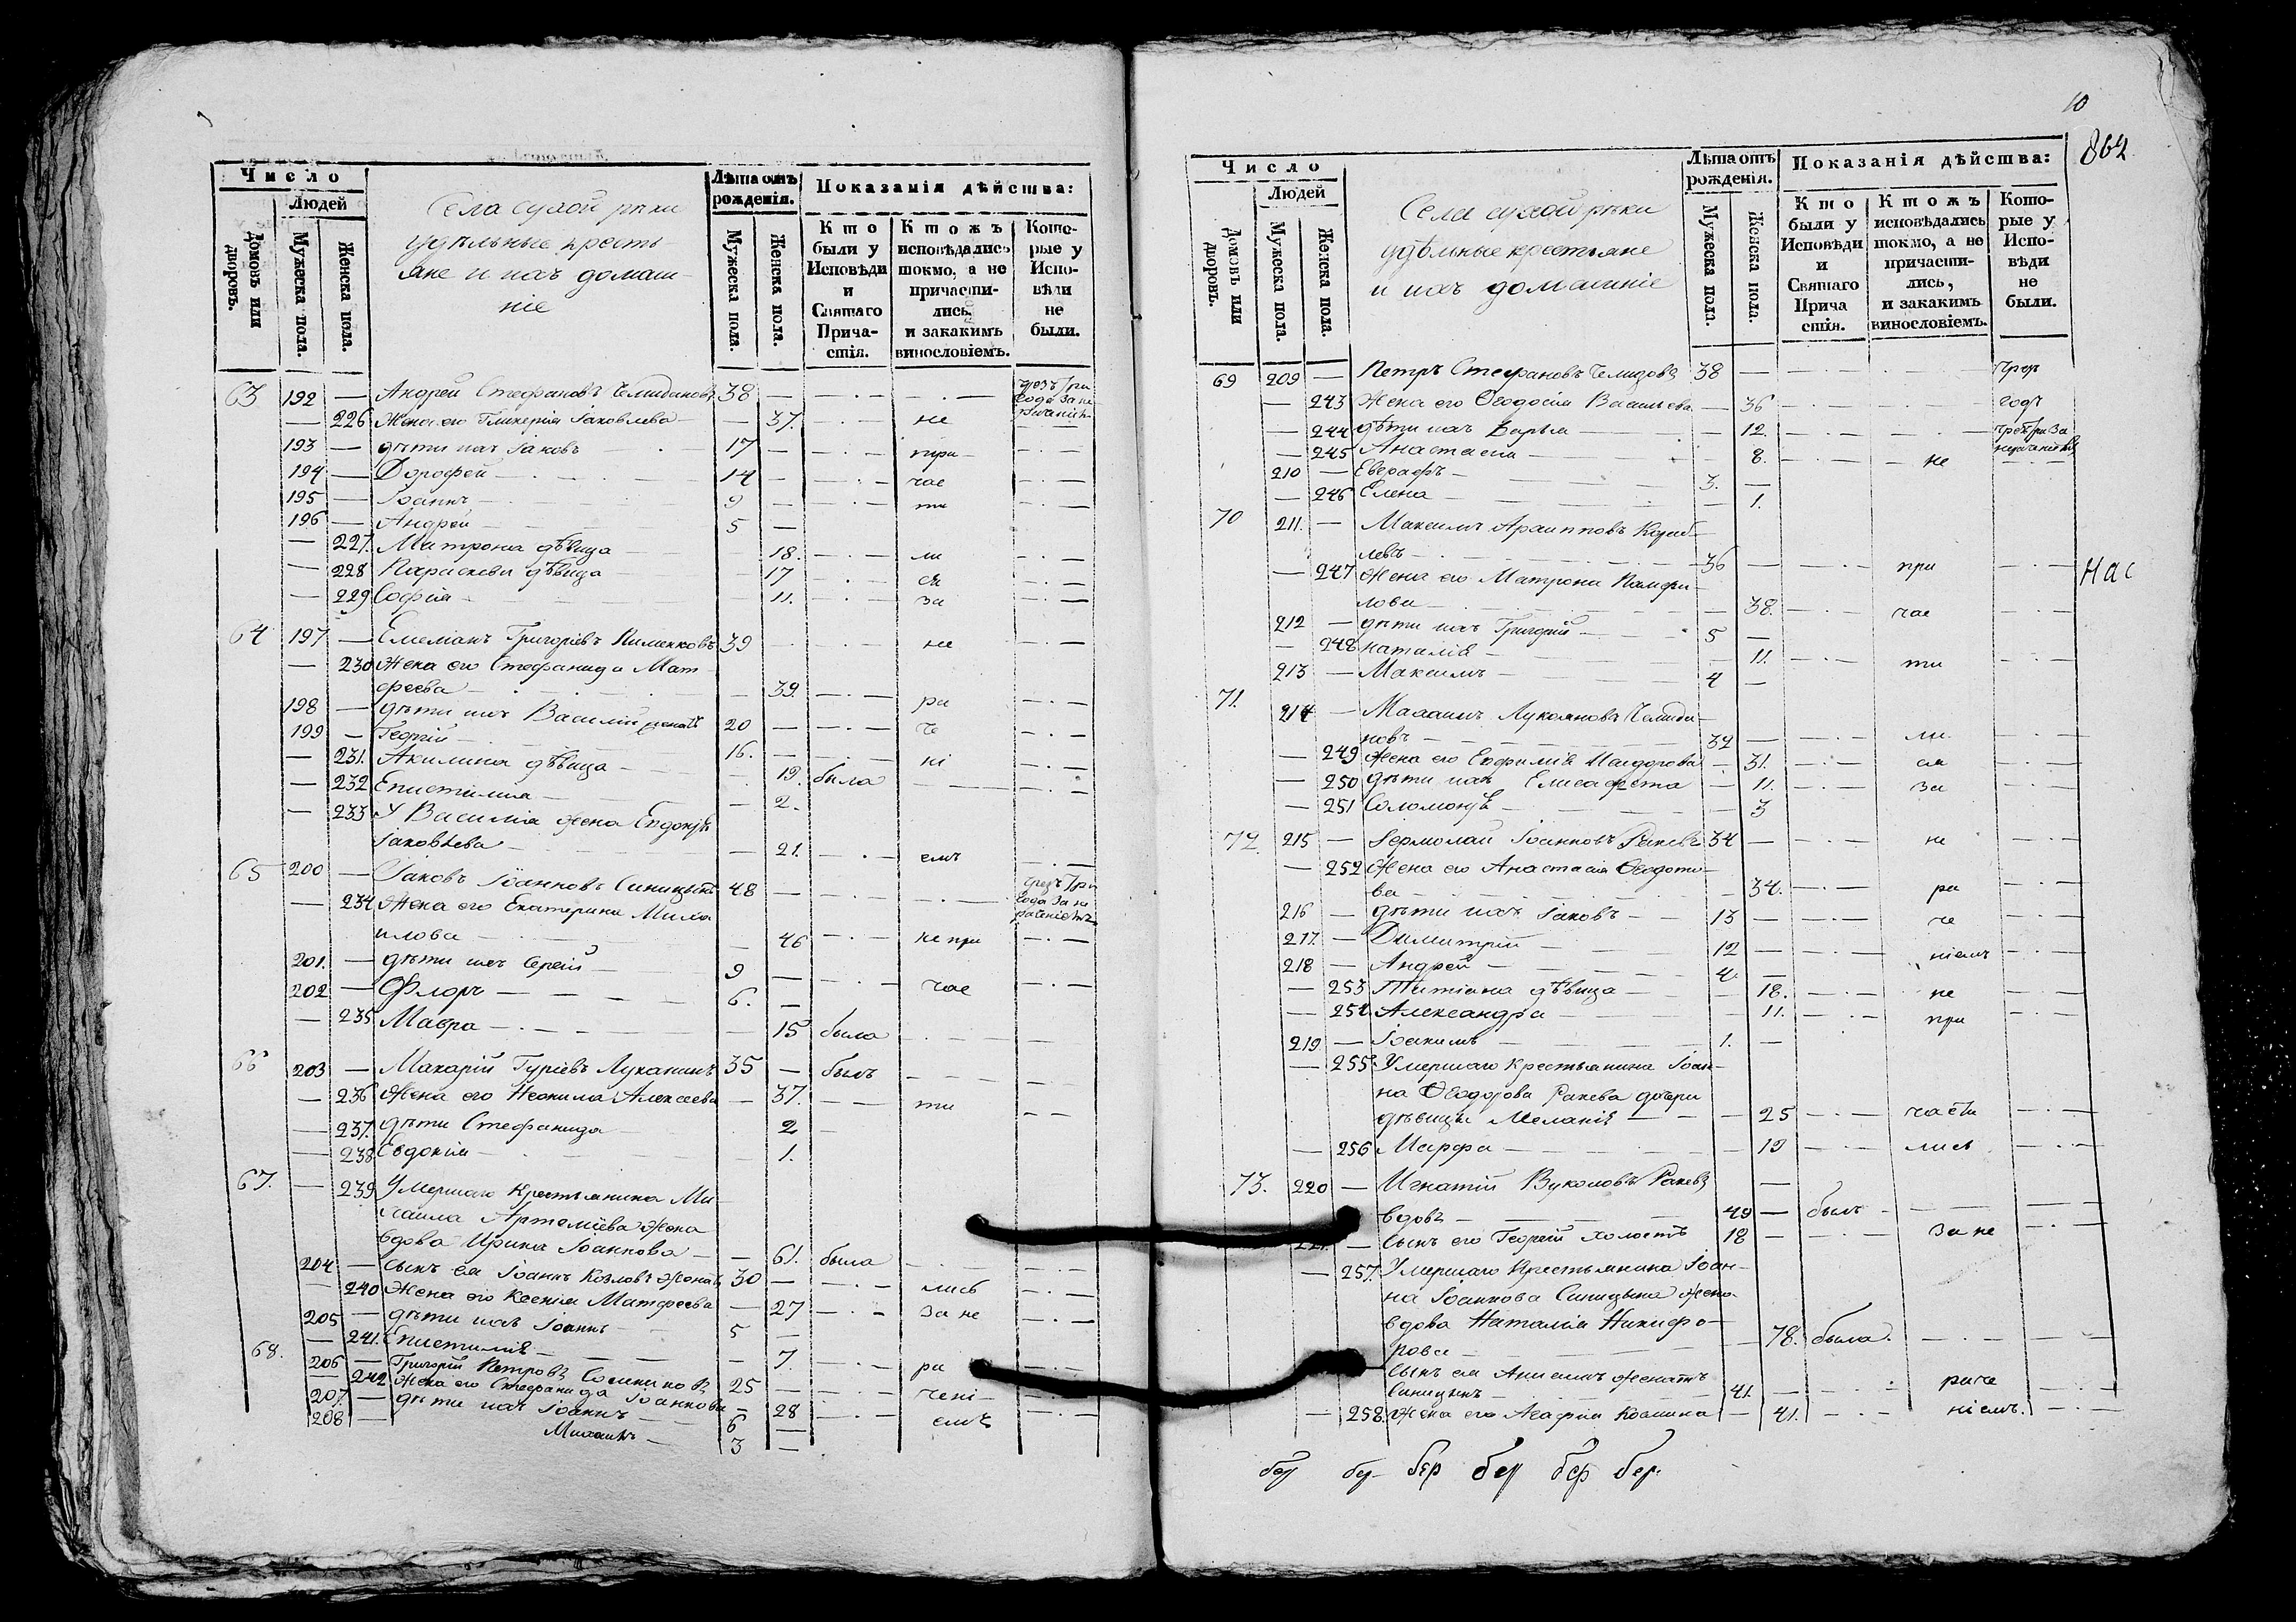 Число
Людей
Домовъ или дворовъ.
Мужеска пола.
Женска пола.
Села сухой рѣки
удѣльные кресть
яне и ихъ домаш-
ніе
Лѣта отъ рожденія.
Мужеска пола.
Женска пола.
Показанія дѣйства:
Кто были у Исповѣди и Святаго Прича-стія.
Ктожъ исповѣдались токмо, а не причасти-лись, и закакимъ винословіемъ.
Кото-рые у Испо-вѣди не были.
63 192 — Андрей Стефановъ 38 —
— 226 Жена его Гликерія Іаковлева — 37. не
193 — дѣти ихъ Іаковъ 17 — при-
194 — Дорофей 14 — час
195 — Іоаннъ 9 — ти
196 — Андрей 5 —
— 227. Матрона дѣвица 18. ли
— 228 Параскева дѣвица 17 ся
— 229 Софія 11. за
64 197 — Григоріевъ Пименковъ 39 не
— 230 Жена его Стефанида Мат-
феева — 39. ра
198 — дѣти ихъ Василій женатъ 20 — че
199 — Георгій 16. — ні
— 231. Акилина дѣвица 19. была
— 232 Епистимія — 2.
— 233 У Василія жена Евдокія
Іаковлева — 21. емъ
65 200 — Іаковъ Іоанновъ Синицынъ 48 —
— 234 Жена его Екатерина
— 46 не при
201. — дѣти ихъ Сергій 9 —
202 — Флоръ 6. — час
— 235 Мавра — 15 была
66 203 — Макарій Гуріевъ Луканинъ 35 — былъ
— 236 Жена его Неонила Алексеева — 37. ти
— 237. дѣти Стефанида 2
— 238 Евдокія — 1.
67. — 239 Умершаго крестьянина Ми-
хаила Артеміева жена
вдова Ирина Іоаннова — 61. была
204 — сынъ ея Іоаннъ Козловъ женатъ 30 — лись
— 240 Жена его Ксенія Матфеева — 27 за не
205 — дѣти ихъ Іоаннъ 5 —
— 241. Епистимія — 7. ра
68. 206 — Григорій Петровъ 25 — чені-
— 242 Жена его Стефанида Іоаннова — 28 емъ
207. — дѣти ихъ Іоаннъ 6 —
208 — Михаилъ 3 —
10
864
Число
Людей
Домовъ или дворовъ.
Мужеска пола.
Женска пола.
Села сухой рѣки
удѣльные крестьяне
и ихъ домашніе
Лѣта отъ рожденія.
Мужеска пола.
Женска пола.
Показанія дѣйства:
Кто были у Исповѣди и Святаго Прича стія.
Ктожъ исповѣдались токмо, а не причасти-лись, и закакимъ винословіемъ.
Кото-рые у Испо-вѣди не были.
69 209 — Петръ Стефановъ 38 —
— 243 Жена его Феодосія Васильева — 36 годъ
— 244 дѣти ихъ Дарья — 12.
— 245 Анастасія — 8. не
210 — Евграфъ 3. —
— 246 Елена — 1.
70 211. — Максимъ
левъ 36 — при
— 247 Жена его Матрона Памфи-
лова — 38. час
212 — дѣти ихъ Григорій 5 —
— 248 Наталія — 11. ти
213 — Максимъ 4 —
71. 214 — Лукояновъ
новъ 32 — ли
— 249 Жена его Евфимія Исидорова — 31. ся
— 250 дѣти ихъ Елисавета — 11. за
— 251 Соломонія 3
72. 215 — Ермолай Іоанновъ Ракевъ 34 — не
— 252 Жена его Анастасія Феодото-
ва — 34. ра
216 — дѣти ихъ Іаковъ 13 — че
217. — Димитрій 12 — ніемъ
218 — Андрей 4. —
— 253 Татіана дѣвица — 18. не
— 254 Александра — 11. при
219 — Іоакимъ 1. —
— 255 Умершаго крестьянина Іоан-
на Феодорова Ракева дочери
дѣвицы Меланія — 25 части
— 256 Марфа — 19 лись
73. 220 — Игнатій Вуколовъ Ракевъ —
вдовъ 49 — былъ
221. — сынъ его Георгій холостъ 18 — за не
— 257. Умершаго крестьянина Іоан-
на Іоаннова Синицына жена
вдова Наталія Никифо-
рова — 78. была.
сынъ ея женатъ
Синицынъ 41. — раче
— 258. Жена его Агафія Козмина — 41. ніемъ.
нас